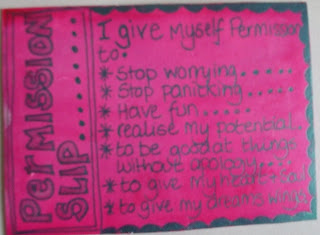 PERMISSION
SLIP.....
I give myself Permission
to:
* Stop worrying.....
* Stop panicking.....
* Have fun.....
* realise my potential...
* to be good at things
without apology....
* to give my heart + soul
* to give my dreams wings